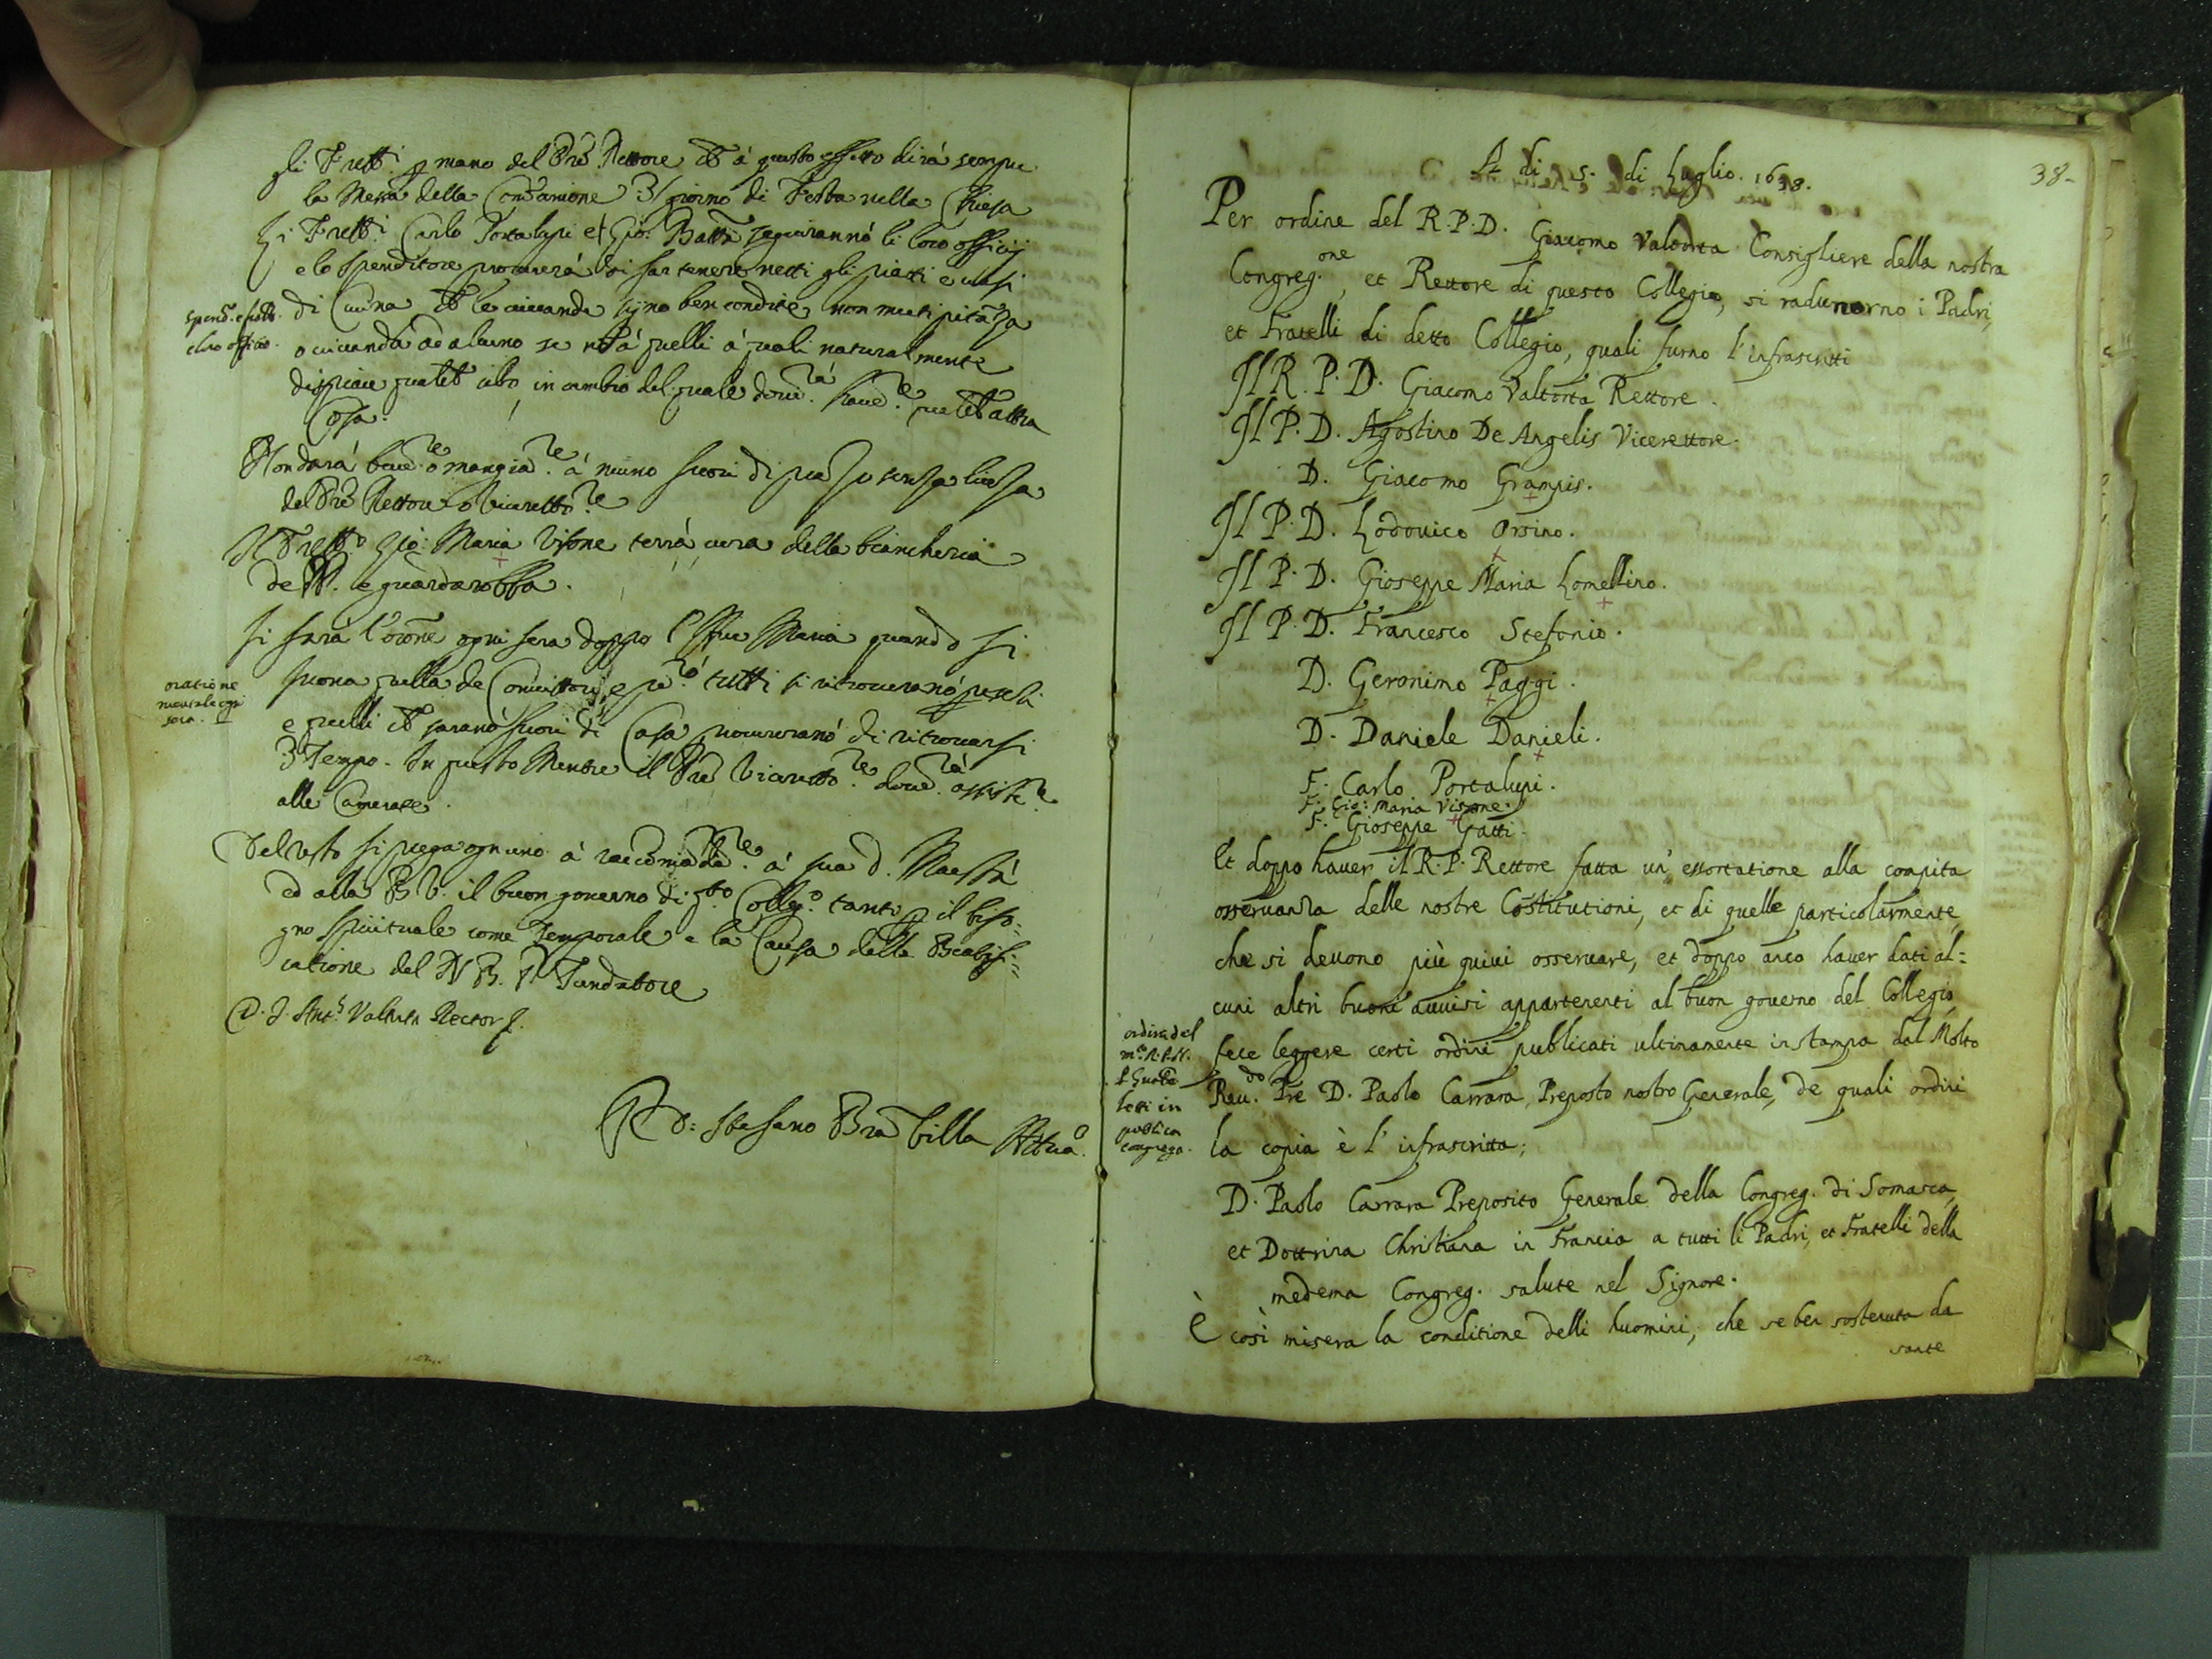 gli Frelli p mano del Prẽ Rettore ch à questo effetto dirà sempre
la Messa della Comũnione il giorno di Festa nella Chiesa
Li Frelli Carlo Portalupi et Gio: Batta seguirannó li loro officij
e lo Spenditore procurerà di far tenere netti gli piatti e vasi
di Cucina ch le vivande sijno ben condite, non muti pitãza
o vivanda ad alcuno se nõ à quelli à quali naturalmente
dispiace qualch cibo, in cambio del quale dovrà haver qualch altra
Cosa.
spend.
suo offitio.
Non darà bere ò mangiare à niuno fuori di senza licẽza
del Prẽ Rettore o Vicerettore
Il Frello Gio: Maria Visone terrà cura della biancheria
de PP. e guardarobba.
Si farà l'orõne ogni sera doppo l'Ave Maria quando si
suona quella de Convittori, e però tutti si ritroveranó presti
e quelli ch saranó fuori di Casa procureranó di ritrovarsi
Tempo. In questo Mentre il Prẽ Vicerettore dovrà assistere
alle Camerate.
oratione
mentale ogni
sera.
Del resto si prega ognuno à raccomãdare à sua d. Maestà
ed alla B V. il buon governo di qto Collego tanto p il biso=
gno spirituale come Temporale e la Causa della Beatifi=
catione del N B. P. Fundatore
D. J. Ant. Valtorta Rector
D: Stefano Brãbilla Attuaro
38-
A di 5. di Luglio. 1638.
Per ordine del R.P.D. Giacomo Valtorta Consigliere della nostra
Congreg.one, et Rettore di questo Collegio, si radunorno i Padri,
et Fratelli di detto Collegio, quali furno l'infrascritti
Il R. P. D. Giacomo Valtorta Rettore.
Il P. D. Agostino De Angelis Vicerettore.
D. Giacomo Grampis.
Il P. D. Lodovico Orsino.
Il P. D. Gioseppe Maria Lomellino.
Il P. D. Francesco Stefonio.
D. Geronimo Paggi.
D. Daniele Danieli.
F. Carlo Portalupi.
F. Gio: Maria Visone.
F. Gioseppe Gatti.
Et doppo haver il R. P. Rettore fatta un'essortatione alla compita
osservanza delle nostre Costitutioni, et di quelle particolarmente,
che si devono più quivi osservare, et doppo anco haver dati al=
cuni altri buoni avvisi appartenenti al buon governo del Collegio,
fece leggere certi ordini publicati ultimamente in stampa dal Molto
Rev.do Pre D. Paolo Carrara, Preposto nostro Generale, de quali ordini
la copia è l'infrascritta;
ordini del
letti in
publica
congrega.
D. Paolo Carrara Preposito Generale della Congreg. di Somasca,
et Dottrina Christiana in Francia a tutti li Padri, et Fratelli della
medema Congreg. salute nel Signore.
È così misera la conditione delli huomini, che se ben sostenuta da
sante